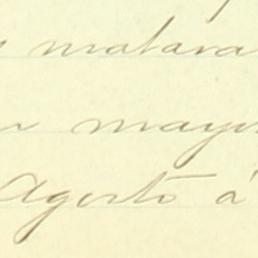 matara
mayo
Agosto á